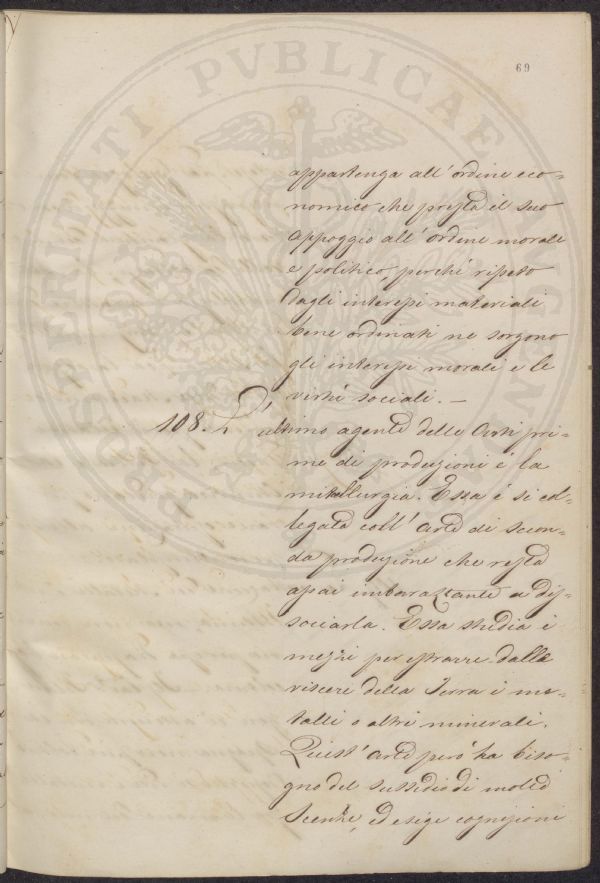 69
appartenga all' ordine eco-
nomico che presta il suo
appoggio all' ordine morale
e politico, perchè ripeto
dagli interessi materiali
bene ordinati ne sorgono
gli interessi morali e le
virtù sociali. —
108. L' ultimo agente delle Arti pri-
me di produzioni é la
mitallurgia. Essa é si col-
legata coll' arte di secon-
da produzione che resta
assai imbarazzante a dis-
sociarla. Essa studia i
mezzi per estrarre dalle
viscere della Terra i me-
talli o altri minerali.
Quest' arte però ha biso-
gno del sussidio di molte
Scienze, ed esige cognizioni
PROSPERITATI PVBLICAE